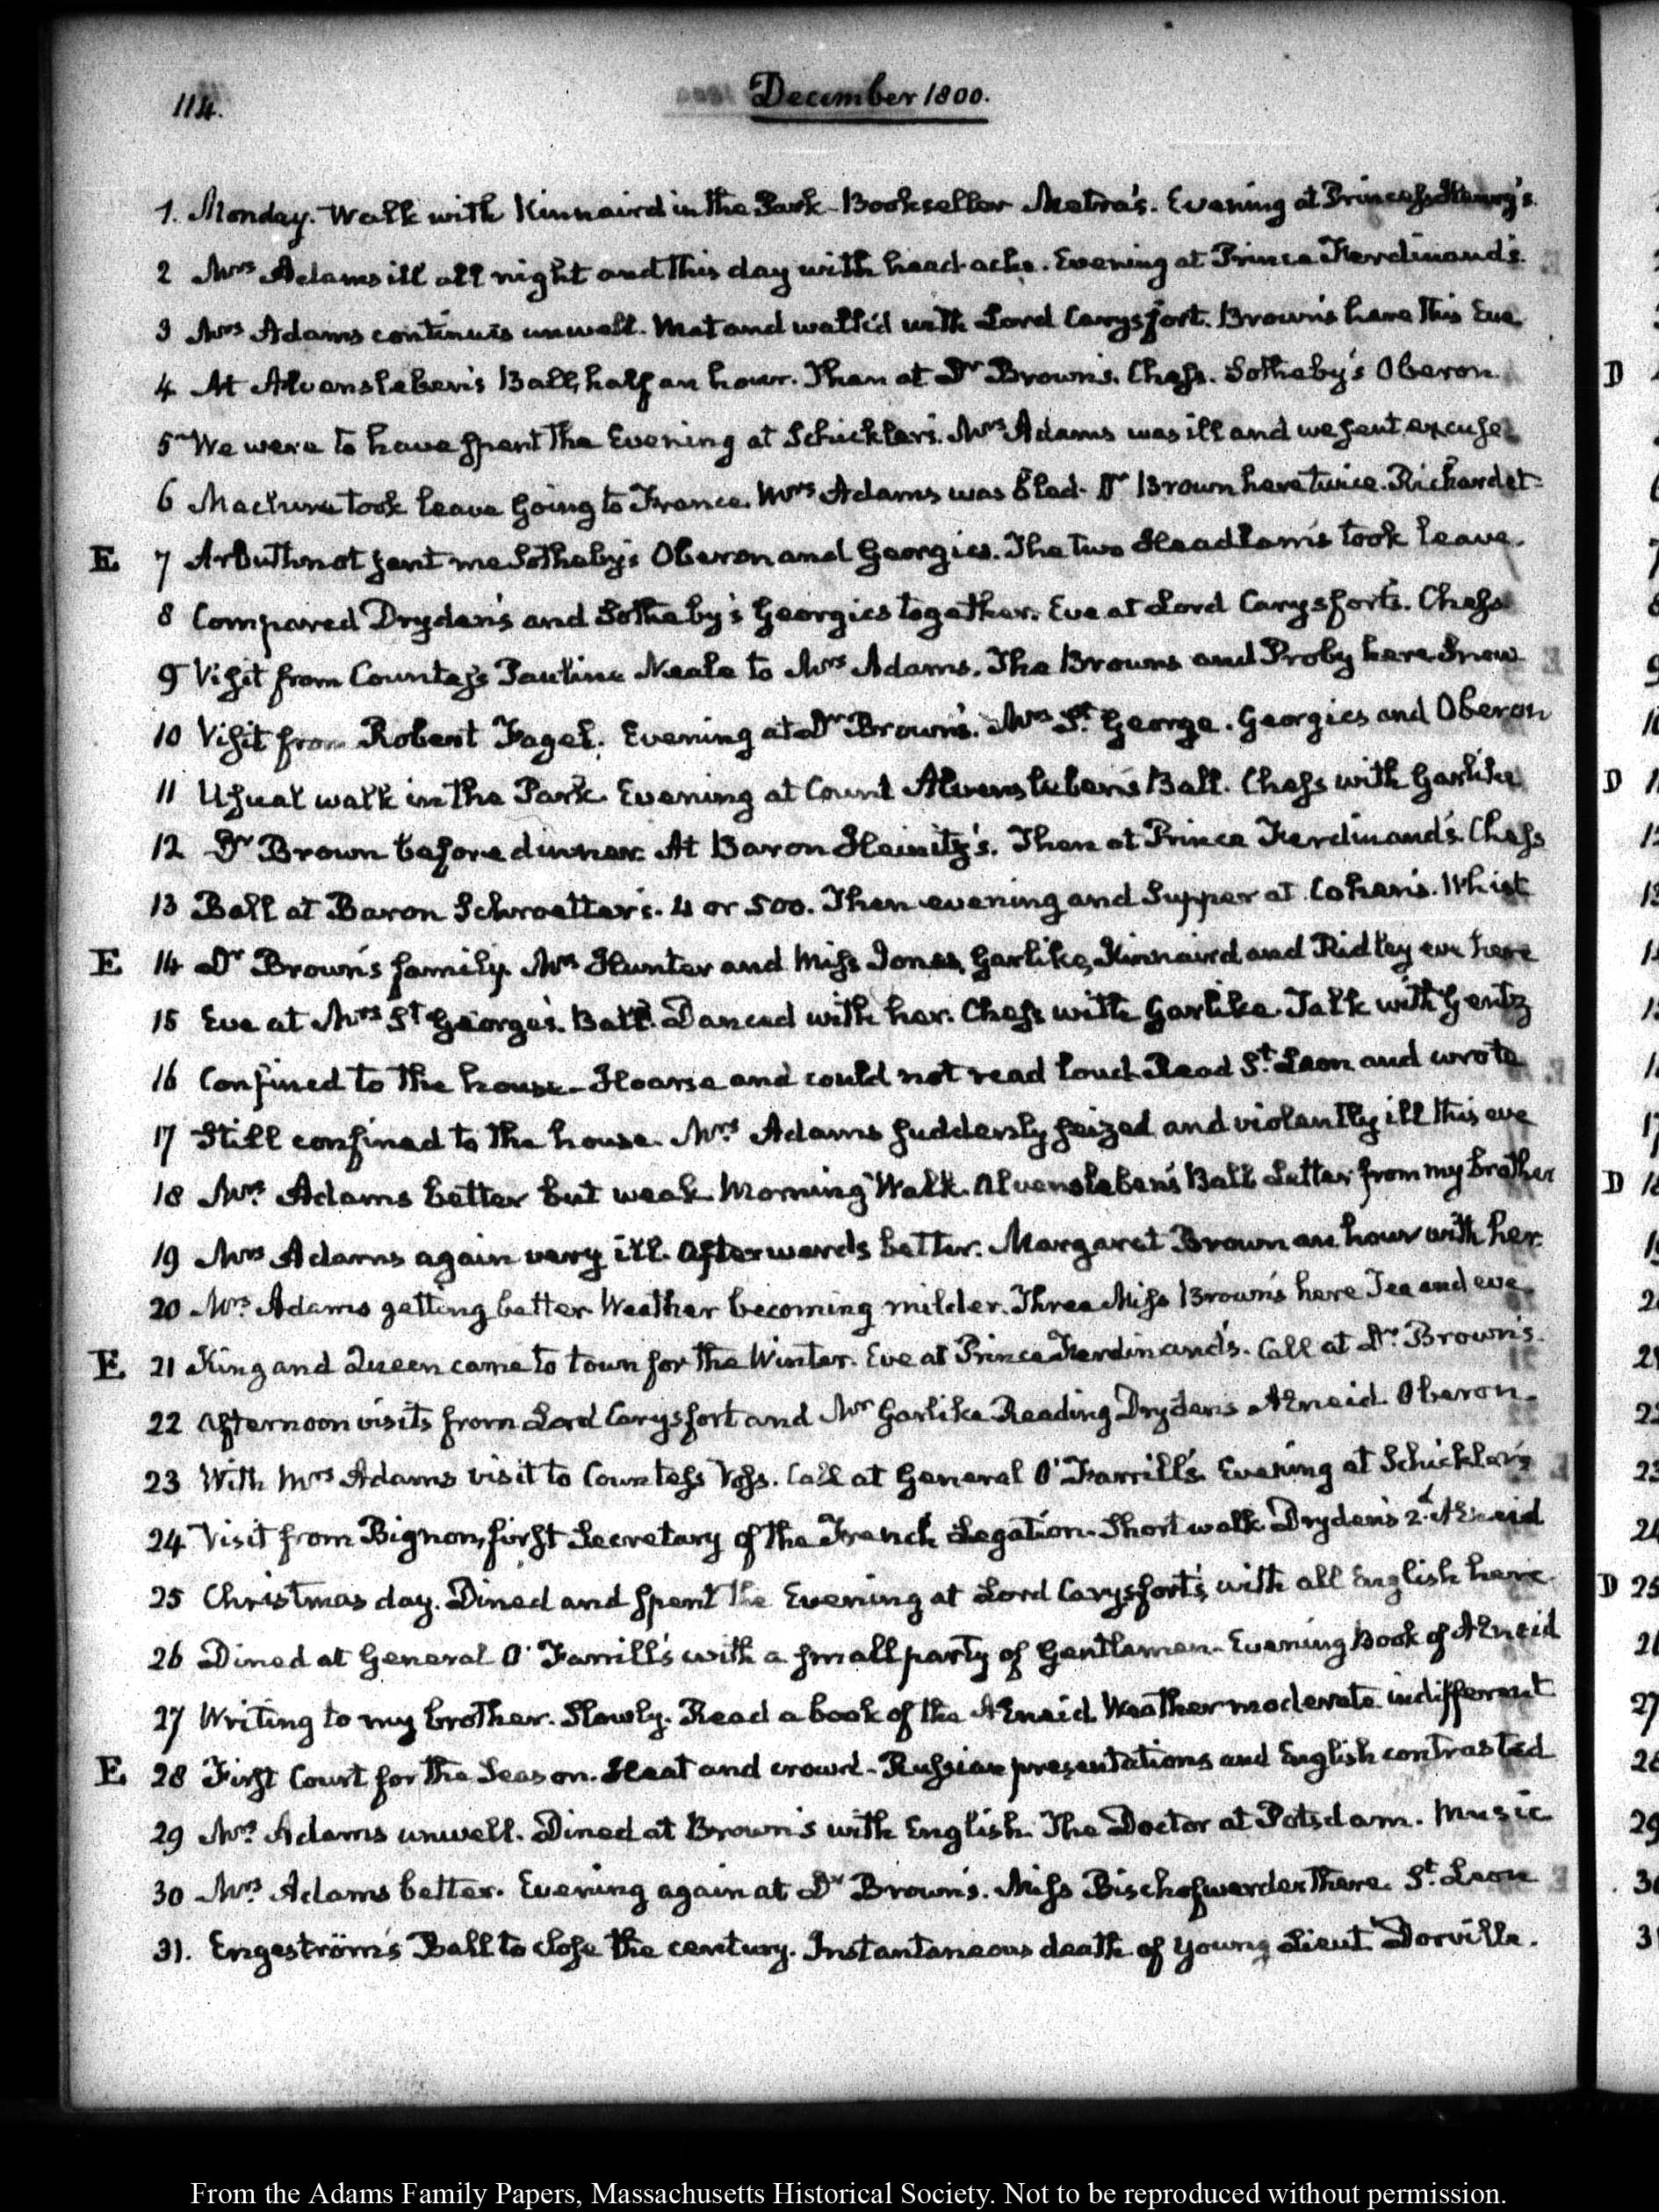 114.
December 1800.
1. Monday. Walk with Kinnaird in the Park – Bookseller Metra's. Evening at Princess Henry's.
2 Mrs Adams ill all night and this day with head-ache. Evening at Prince Ferdinand's.
3 Mrs Adams continues unwell. Met and walk'd with Lord Carysfort. Brown's here this Eve
4 At Alvensleben's Ball, half an hour. Then at Dr Brown's. Chess. Sotheby's Oberon.
5 We were to have spent the Evening at Schickler's. Mrs Adams was ill and we sent excuse
6 Maclure took leave going to France. Mrs Adams was bled. Dr Brown here twice. Rickardet
E 7 Arbuthnot sent me Sotheby's Oberon and Georgics. The two Headlam's took leave.
8 Compared Dryden's and Sotheby's Georgics together. Eve at Lord Carysfort's. Chess
9 Visit from Countess Pauline Neale to Mrs Adams. The Browns and Proby here Snow
10 Visit from Robert Fagel. Evening at Dr Brown's. Mrs St. George. Georgics and Oberon
11 Usual walk in the Park. Evening at Count Alvensleben's Ball. Chess with Garlike
12 Dr Brown before dinner. At Baron Heinitz's. Then at Prince Ferdinand's. Chess
13 Ball at Baron Schroetter's. 4 or 500. Then evening and Supper at Cohen's. Whist
E 14 Dr Brown's family. Mrs Hunter and Miss Jones, Garlike, Kinnaird and Ridley eve here
15 Eve at Mrs St George's. Ball. Danced with her. Chess with Garlike. Talk with Gentz
16 Confined to the house – Hoarse and could not read loud. Read St. Leon and wrote
17 Still confined to the house. Mrs. Adams suddenly seized and violently ill this eve
18 Mrs. Adams better but weak. Morning Walk. Alvensleben's Ball Letter from my brother
19 Mrs Adams again very ill. Afterwards better. Margaret Brown an hour with her.
20 Mrs. Adams getting better Weather becoming milder. Three Miss Brown's here Tea and eve
E 21 King and Queen came to town for the Winter. Eve at Prince Ferdinand's. Call at Dr. Brown's.
22 Afternoon visits from Lord Carysfort and Mr Garlike Reading Dryden's AEneid. Oberon.
23 With Mrs Adams visit to Countess Voss. Call at General O'Farrill's. Evening at Schickler's
24 Visit from Bignon, first Secretary of the French Legation. Short walk. Dryden's 2.d AEneid
25 Christmas day. Dined and spent the Evening at Lord Carysfort's, with all English here
26 Dined at General O'Farrill's with a small party of Gentlemen. Evening Book of AEneid
27 Writing to my brother. Slowly. Read a book of the AEneid. Weather moderate indifferent
E 28 First Court for the Season. Heat and crowd – Russian presentations and English contrasted
29 Mrs. Adams unwell. Dined at Brown's with English. The Doctor at Potsdam. Music
30 Mrs. Adams better. Evening again at Dr Brown's. Miss Bischofwerder there. St. Leon
31. Engeström's Ball to close the century. Instantaneous death of young Lieut. Dorville.
From the Adams Family Papers, Massachusetts Historical Society. Not to be reproduced without permission.